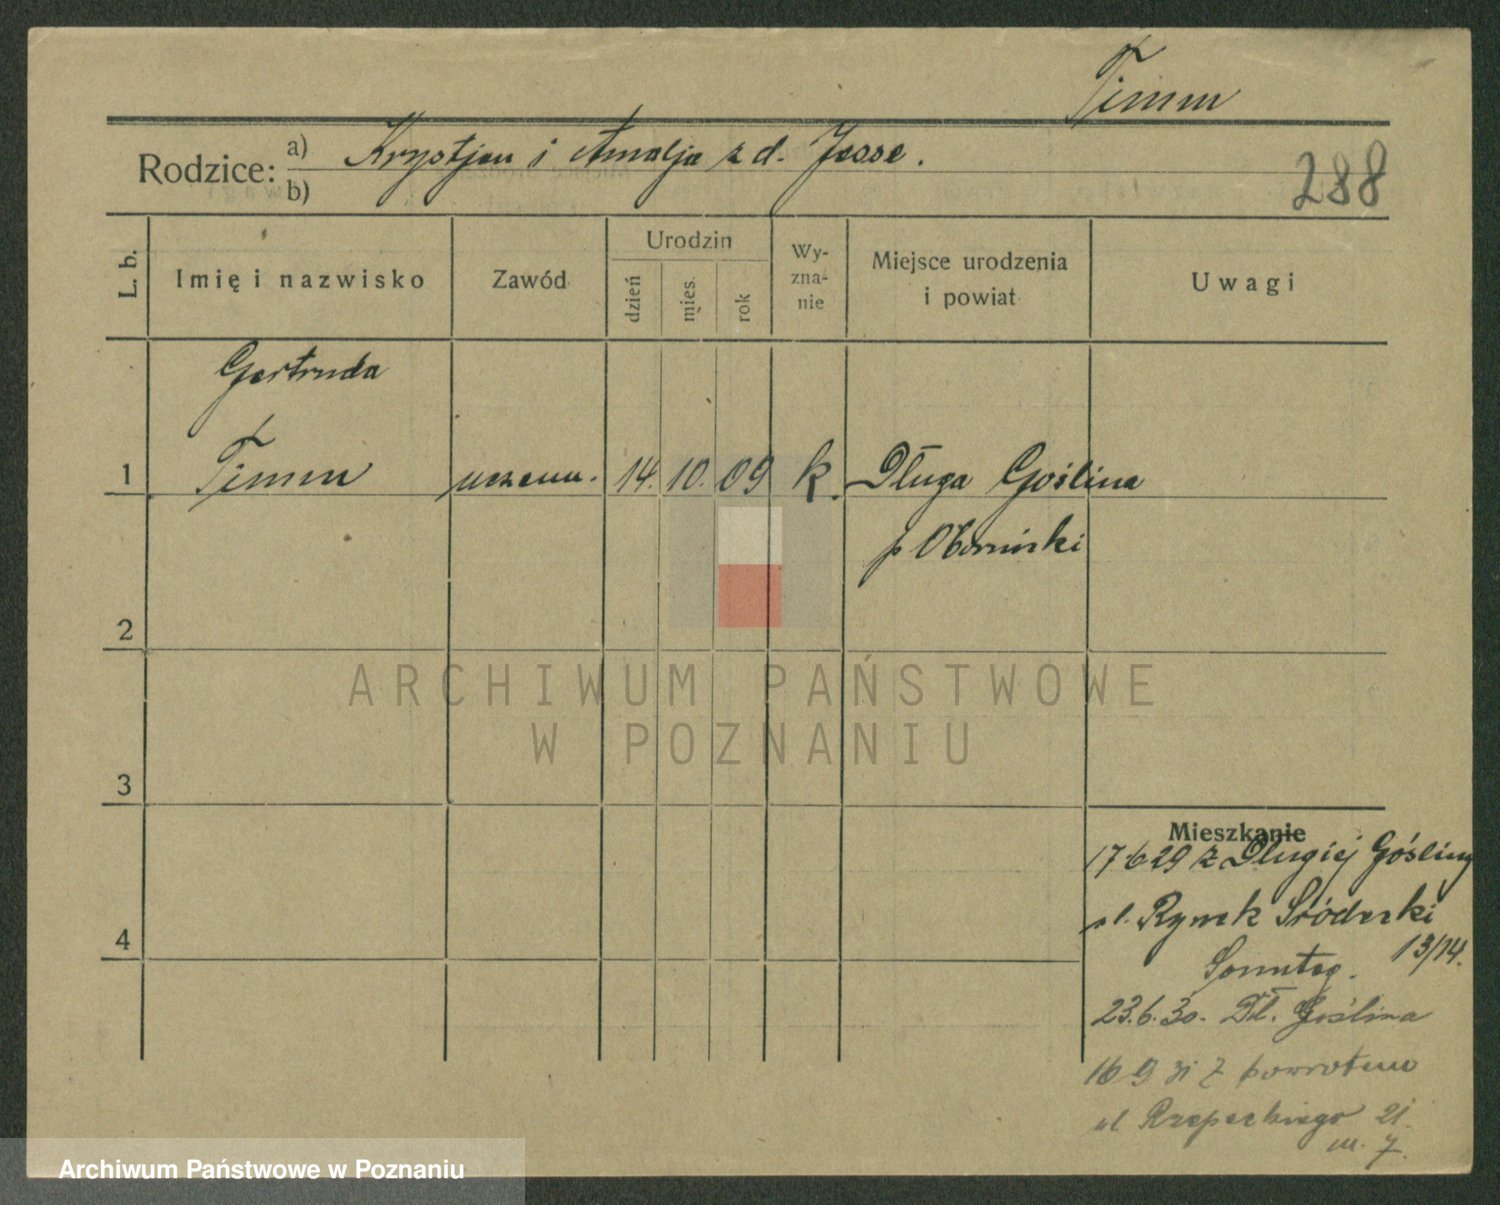 Timm
Rodzice: a) Krystjan i Amalja z d. Jesse.
b)
288
L. b.
Imię i nazwisko
Zawód
Urodzin
dzień
mies.
rok
Wy-
zna-
nie
Miejsce urodzenia
i powiat
Uwagi
Gertruda
1 Timm uczenn. 14. 10. 09 k. Długa Goślina
p Obornicki
2
3
4
Mieszkanie
17 6 29 z Długiej Gośliny
ul. Rynek Śródecki
13/14.
Sonntag.
23.6.30. Dł. Goślina
16 9 31 z powrotem
ul Rzepeckiego 21.
m. 7.
ARCHIWUM PAŃSTWOWE
W POZNANIU
Archiwum Państwowe w Poznaniu